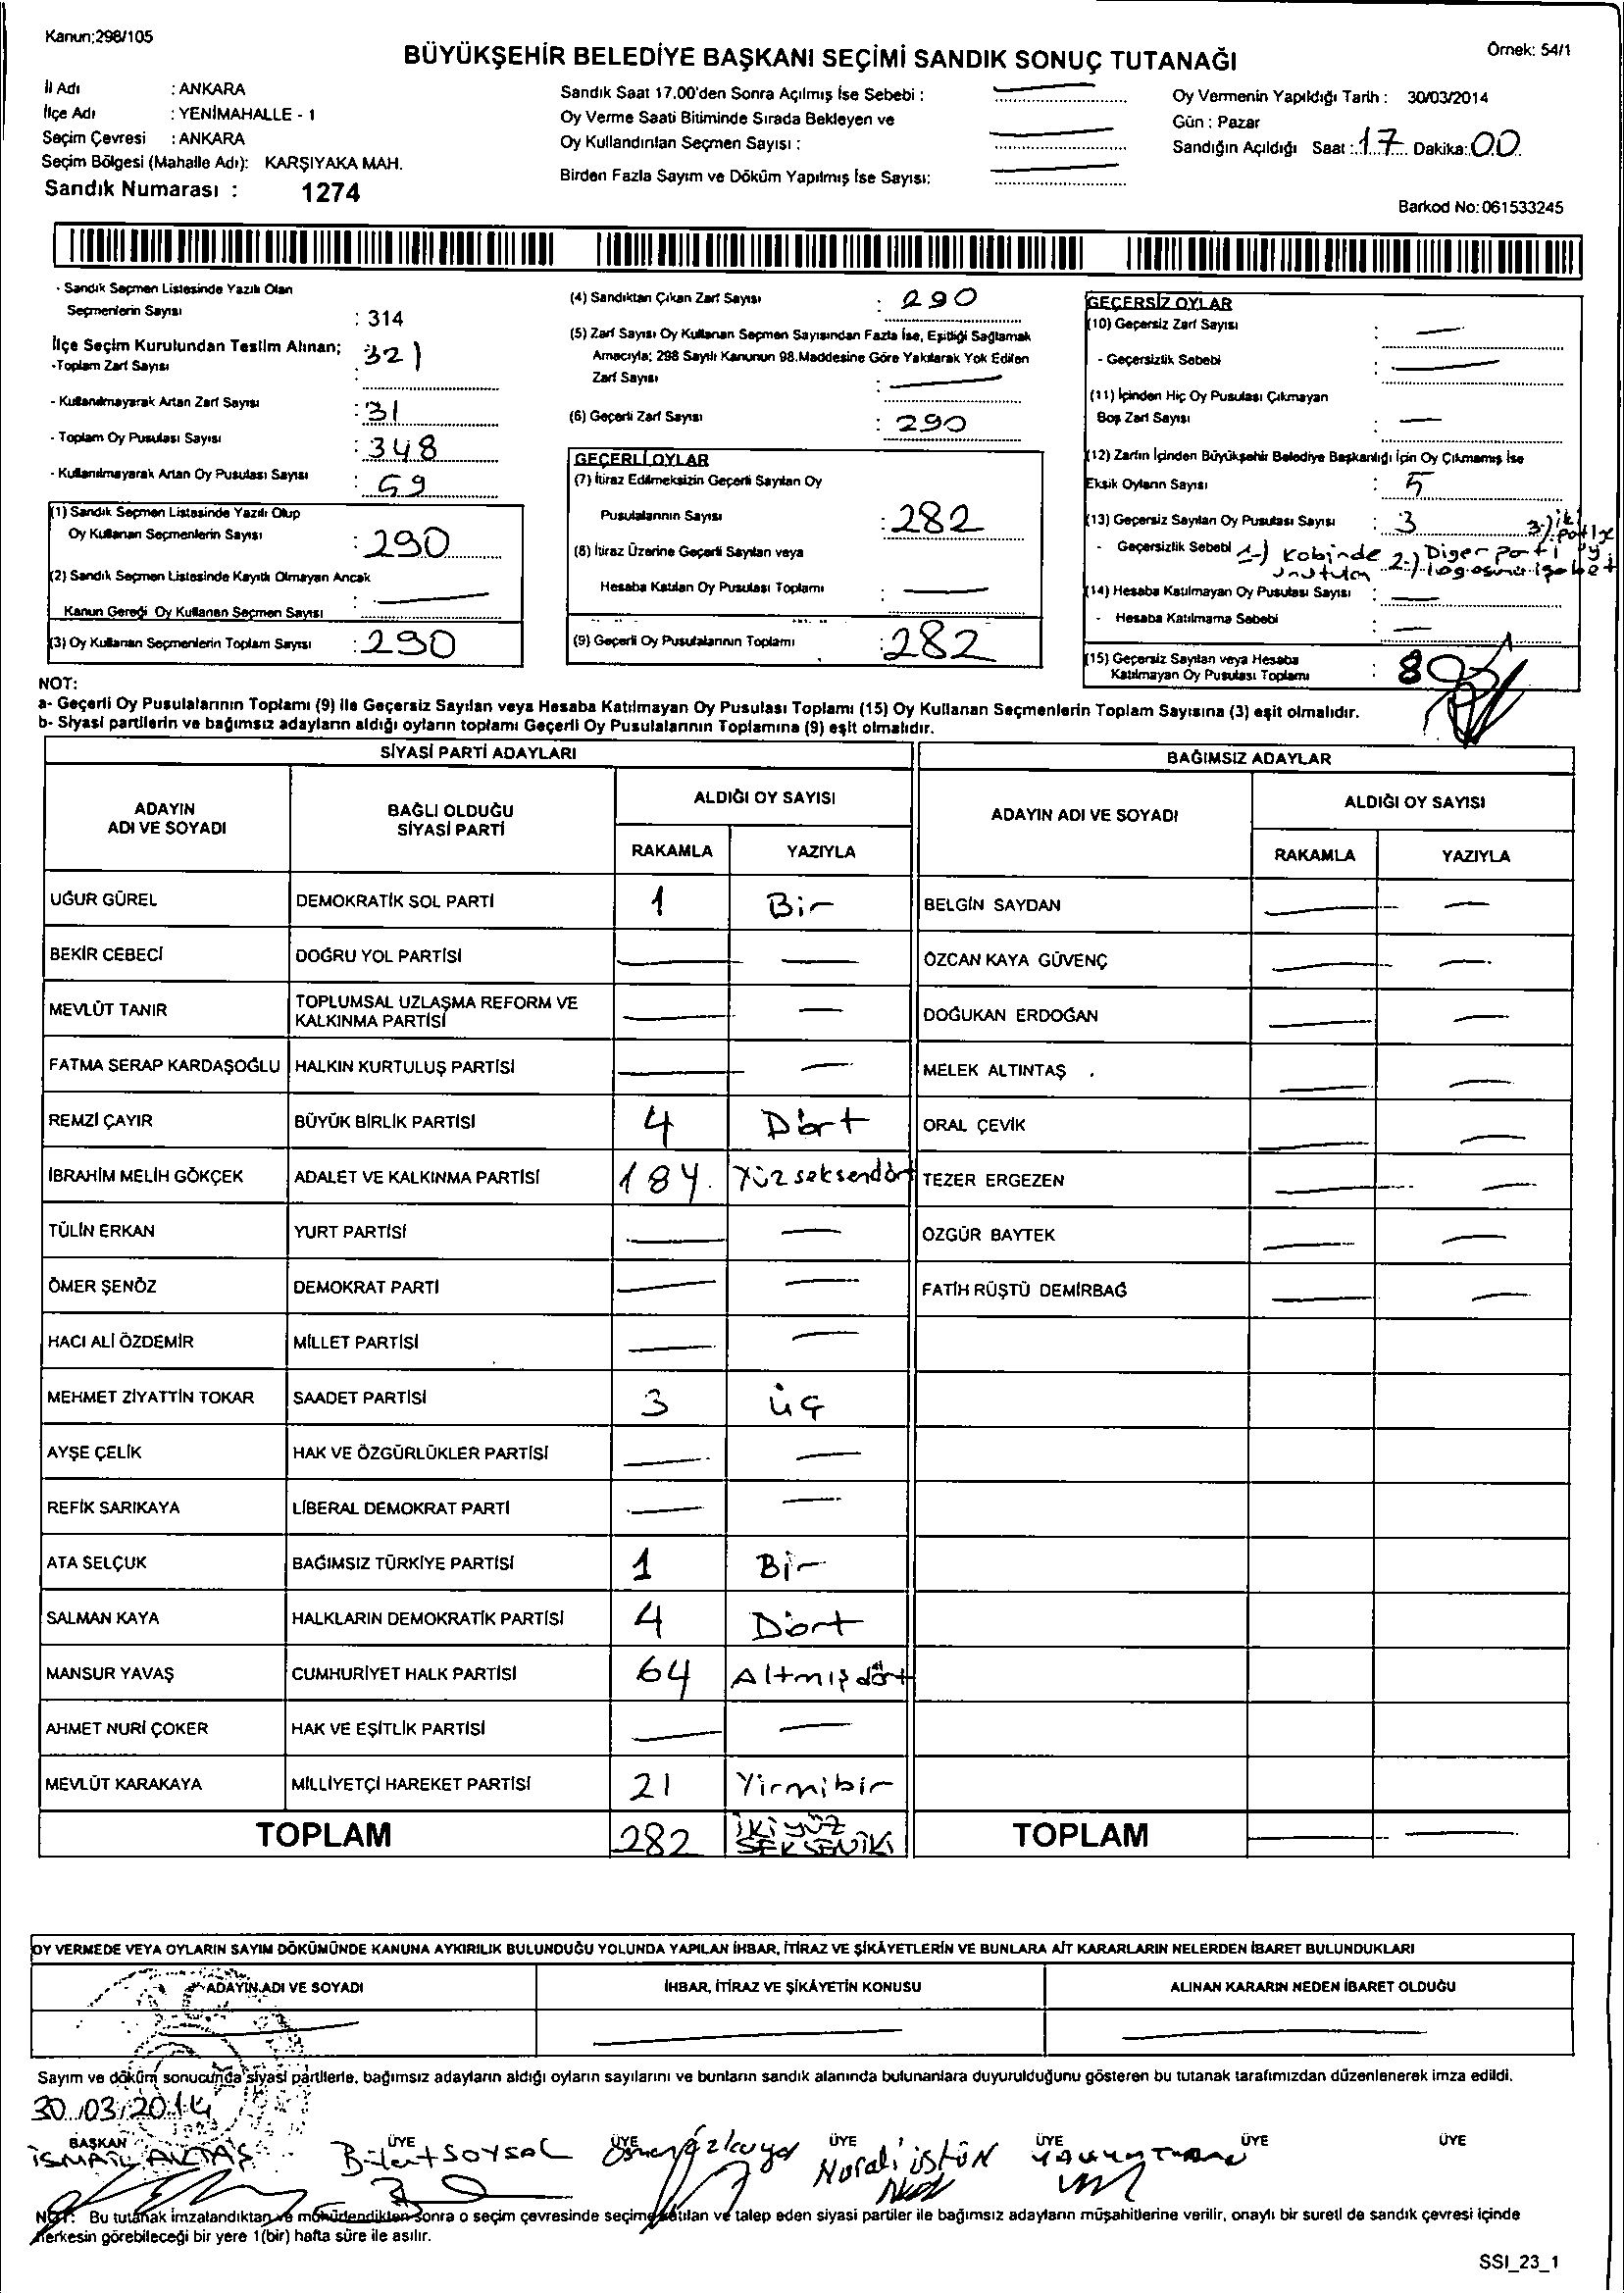 Kanun;298/105
BÜYÜKŞEHİR BELEDİYE BAŞKANI SEÇİMİ SANDIK SONUÇ TUTANAĞI
Örnek: 54/1
İl Adı : ANKARA
İlçe Adı : YENİMAHALLE - 1
Seçim Çevresi : ANKARA
Seçim Bölgesi (Mahalle Adı): KARŞIYAKA MAH.
Sandık Numarası : 1274
Sandık Saat 17.00'den Sonra Açılmış İse Sebebi :
Oy Verme Saati Bitiminde Sırada Bekleyen ve
Oy Kullandırılan Seçmen Sayısı :
Birden Fazla Sayım ve Döküm Yapılmış İse Sayısı:
Oy Vermenin Yapıldığı Tarih : 30/03/2014
Gün : Pazar
Sandığın Açıldığı Saat : 17 Dakika: 00
Barkod No: 061533245
- Sandık Seçmen Listesinde Yazılı Olan
Seçmenlerin Sayısı : 314
İlçe Seçim Kurulundan Teslim Alınan;
-Toplam Zarf Sayısı : 321
- Kullanılmayarak Artan Zarf Sayısı : 31
- Toplam Oy Pusulası Sayısı : 348
- Kullanılmayarak Artan Oy Pusulası Sayısı : 59
(1) Sandık Seçmen Listesinde Yazılı Olup
Oy Kullanan Seçmenlerin Sayısı : 290
(2) Sandık Seçmen Listesinde Kayıtlı Olmayan Ancak
Kanun Gereği Oy Kullanan Seçmen Sayısı :
(3) Oy Kullanan Seçmenlerin Toplam Sayısı : 290
(4) Sandıktan Çıkan Zarf Sayısı : 290
(5) Zarf Sayısı Oy Kullanan Seçmen Sayısından Fazla İse, Eşitliği Sağlamak
Amacıyla; 298 Sayılı Kanunun 98.Maddesine Göre Yakılarak Yok Edilen
Zarf Sayısı :
(6) Geçerli Zarf Sayısı : 290
GEÇERLİ OYLAR
(7) İtiraz Edilmeksizin Geçerli Sayılan Oy
Pusulalarının Sayısı : 282
(8) İtiraz Üzerine Geçerli Sayılan veya
Hesaba Katılan Oy Pusulası Toplamı :
(9) Geçerli Oy Pusulalarının Toplamı : 282
GEÇERSİZ OYLAR
(10) Geçersiz Zarf Sayısı :
- Geçersizlik Sebebi :
(11) İçinden Hiç Oy Pusulası Çıkmayan
Boş Zarf Sayısı :
(12) Zarfın İçinden Büyükşehir Belediye Başkanlığı İçin Oy Çıkmamış İse
Eksik Oyların Sayısı : 5
(13) Geçersiz Sayılan Oy Pusulası Sayısı : 3
- Geçersizlik Sebebi 1-) Kabinde unutulan 2-) Diğer parti logosuna isabet 3-) iki partiye
(14) Hesaba Katılmayan Oy Pusulası Sayısı :
- Hesaba Katılmama Sebebi :
(15) Geçersiz Sayılan veya Hesaba
Katılmayan Oy Pusulası Toplamı : 8
NOT:
a- Geçerli Oy Pusulalarının Toplamı (9) ile Geçersiz Sayılan veya Hesaba Katılmayan Oy Pusulası Toplamı (15) Oy Kullanan Seçmenlerin Toplam Sayısına (3) eşit olmalıdır.
b- Siyasi partilerin ve bağımsız adayların aldığı oyların toplamı Geçerli Oy Pusulalarının Toplamına (9) eşit olmalıdır.
SİYASİ PARTİ ADAYLARI
BAĞIMSIZ ADAYLAR
ADAYIN ADI VE SOYADI
BAĞLI OLDUĞU SİYASİ PARTİ
ALDIĞI OY SAYISI
ADAYIN ADI VE SOYADI
ALDIĞI OY SAYISI
RAKAMLA YAZIYLA
RAKAMLA YAZIYLA
UĞUR GÜREL DEMOKRATİK SOL PARTİ 1 Bir BELGİN SAYDAN
BEKİR CEBECİ DOĞRU YOL PARTİSİ ÖZCAN KAYA GÜVENÇ
MEVLÜT TANIR TOPLUMSAL UZLAŞMA REFORM VE KALKINMA PARTİSİ DOĞUKAN ERDOĞAN
FATMA SERAP KARDAŞOĞLU HALKIN KURTULUŞ PARTİSİ MELEK ALTINTAŞ
REMZİ ÇAYIR BÜYÜK BİRLİK PARTİSİ 4 Dört ORAL ÇEVİK
İBRAHİM MELİH GÖKÇEK ADALET VE KALKINMA PARTİSİ 184 Yüzseksendört TEZER ERGEZEN
TÜLİN ERKAN YURT PARTİSİ ÖZGÜR BAYTEK
ÖMER ŞENÖZ DEMOKRAT PARTİ FATİH RÜŞTÜ DEMİRBAĞ
HACI ALİ ÖZDEMİR MİLLET PARTİSİ
MEHMET ZİYATTİN TOKAR SAADET PARTİSİ 3 üç
AYŞE ÇELİK HAK VE ÖZGÜRLÜKLER PARTİSİ
REFİK SARIKAYA LİBERAL DEMOKRAT PARTİ
ATA SELÇUK BAĞIMSIZ TÜRKİYE PARTİSİ 1 Bir
SALMAN KAYA HALKLARIN DEMOKRATİK PARTİSİ 4 Dört
MANSUR YAVAŞ CUMHURİYET HALK PARTİSİ 64 Altmışdört
AHMET NURİ ÇOKER HAK VE EŞİTLİK PARTİSİ
MEVLÜT KARAKAYA MİLLİYETÇİ HAREKET PARTİSİ 21 Yirmibir
TOPLAM 282 İKİYÜZ SEKSENİKİ TOPLAM
OY VERMEDE VEYA OYLARIN SAYIM DÖKÜMÜNDE KANUNA AYKIRILIK BULUNDUĞU YOLUNDA YAPILAN İHBAR, İTİRAZ VE ŞİKÂYETLERİN VE BUNLARA AİT KARARLARIN NELERDEN İBARET BULUNDUKLARI
ADAYIN ADI VE SOYADI İHBAR, İTİRAZ VE ŞİKÂYETİN KONUSU ALINAN KARARIN NEDEN İBARET OLDUĞU
Sayım ve döküm sonucunda siyasi partilerle, bağımsız adayların aldığı oyların sayılarını ve bunların sandık alanında bulunanlara duyurulduğunu gösteren bu tutanak tarafımızdan düzenlenerek imza edildi.
30/03/2014
BAŞKAN ÜYE ÜYE ÜYE ÜYE ÜYE ÜYE
İSMAİL Bülent SOYSAL Osman Özkaya Nurali üstün
NOT: Bu tutanak imzalandıktan ve mühürlendikten sonra o seçim çevresinde seçime katılan ve talep eden siyasi partiler ile bağımsız adayların müşahitlerine verilir, onaylı bir sureti de sandık çevresi içinde
herkesin görebileceği bir yere 1(bir) hafta süre ile asılır.
SSI_23_1